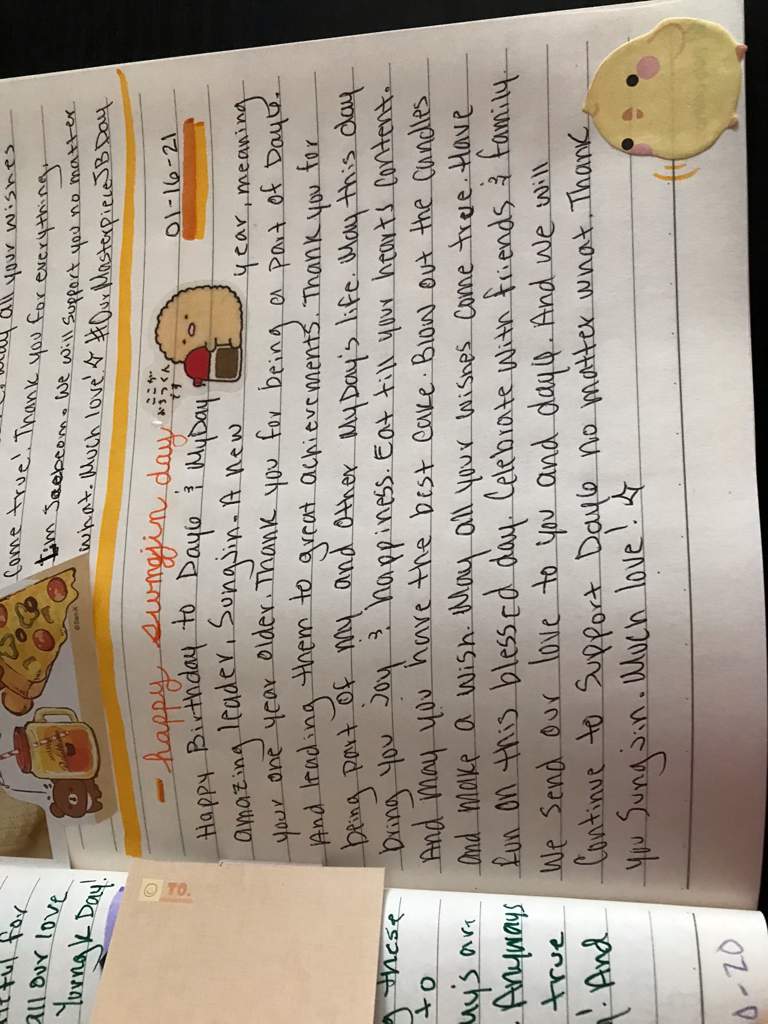 may all your wishes
come true! Thank you for everything,
Lim Jaebeom. We will support you no matter
what. Much love! ☆ #OurMasterpieceJBDay
- happy sungjin day
ここが
おちつくん
です
01-16-21
Happy Birthday to Day6 & MyDay
amazing leader, Sungjin. A new year, meaning
your one year older. Thank you for being a part of Day6.
And leading them to great achievements. Thank you for
being part of my and other MyDay's life. May this day
bring you joy & happiness. Eat till your hearts content.
And may you have the best cake. Blow out the candles
and make a wish. May all your wishes come true. Have
fun on this blessed day. Celebrate with friends & family
We send our love to you and day6. And we will
Continue to support Day6 no matter what. Thank
you Sungjin. Much love! ☆
for
all our love
YoungK Day!
TO.
these
to
are
. Anyways
true
! And
-20